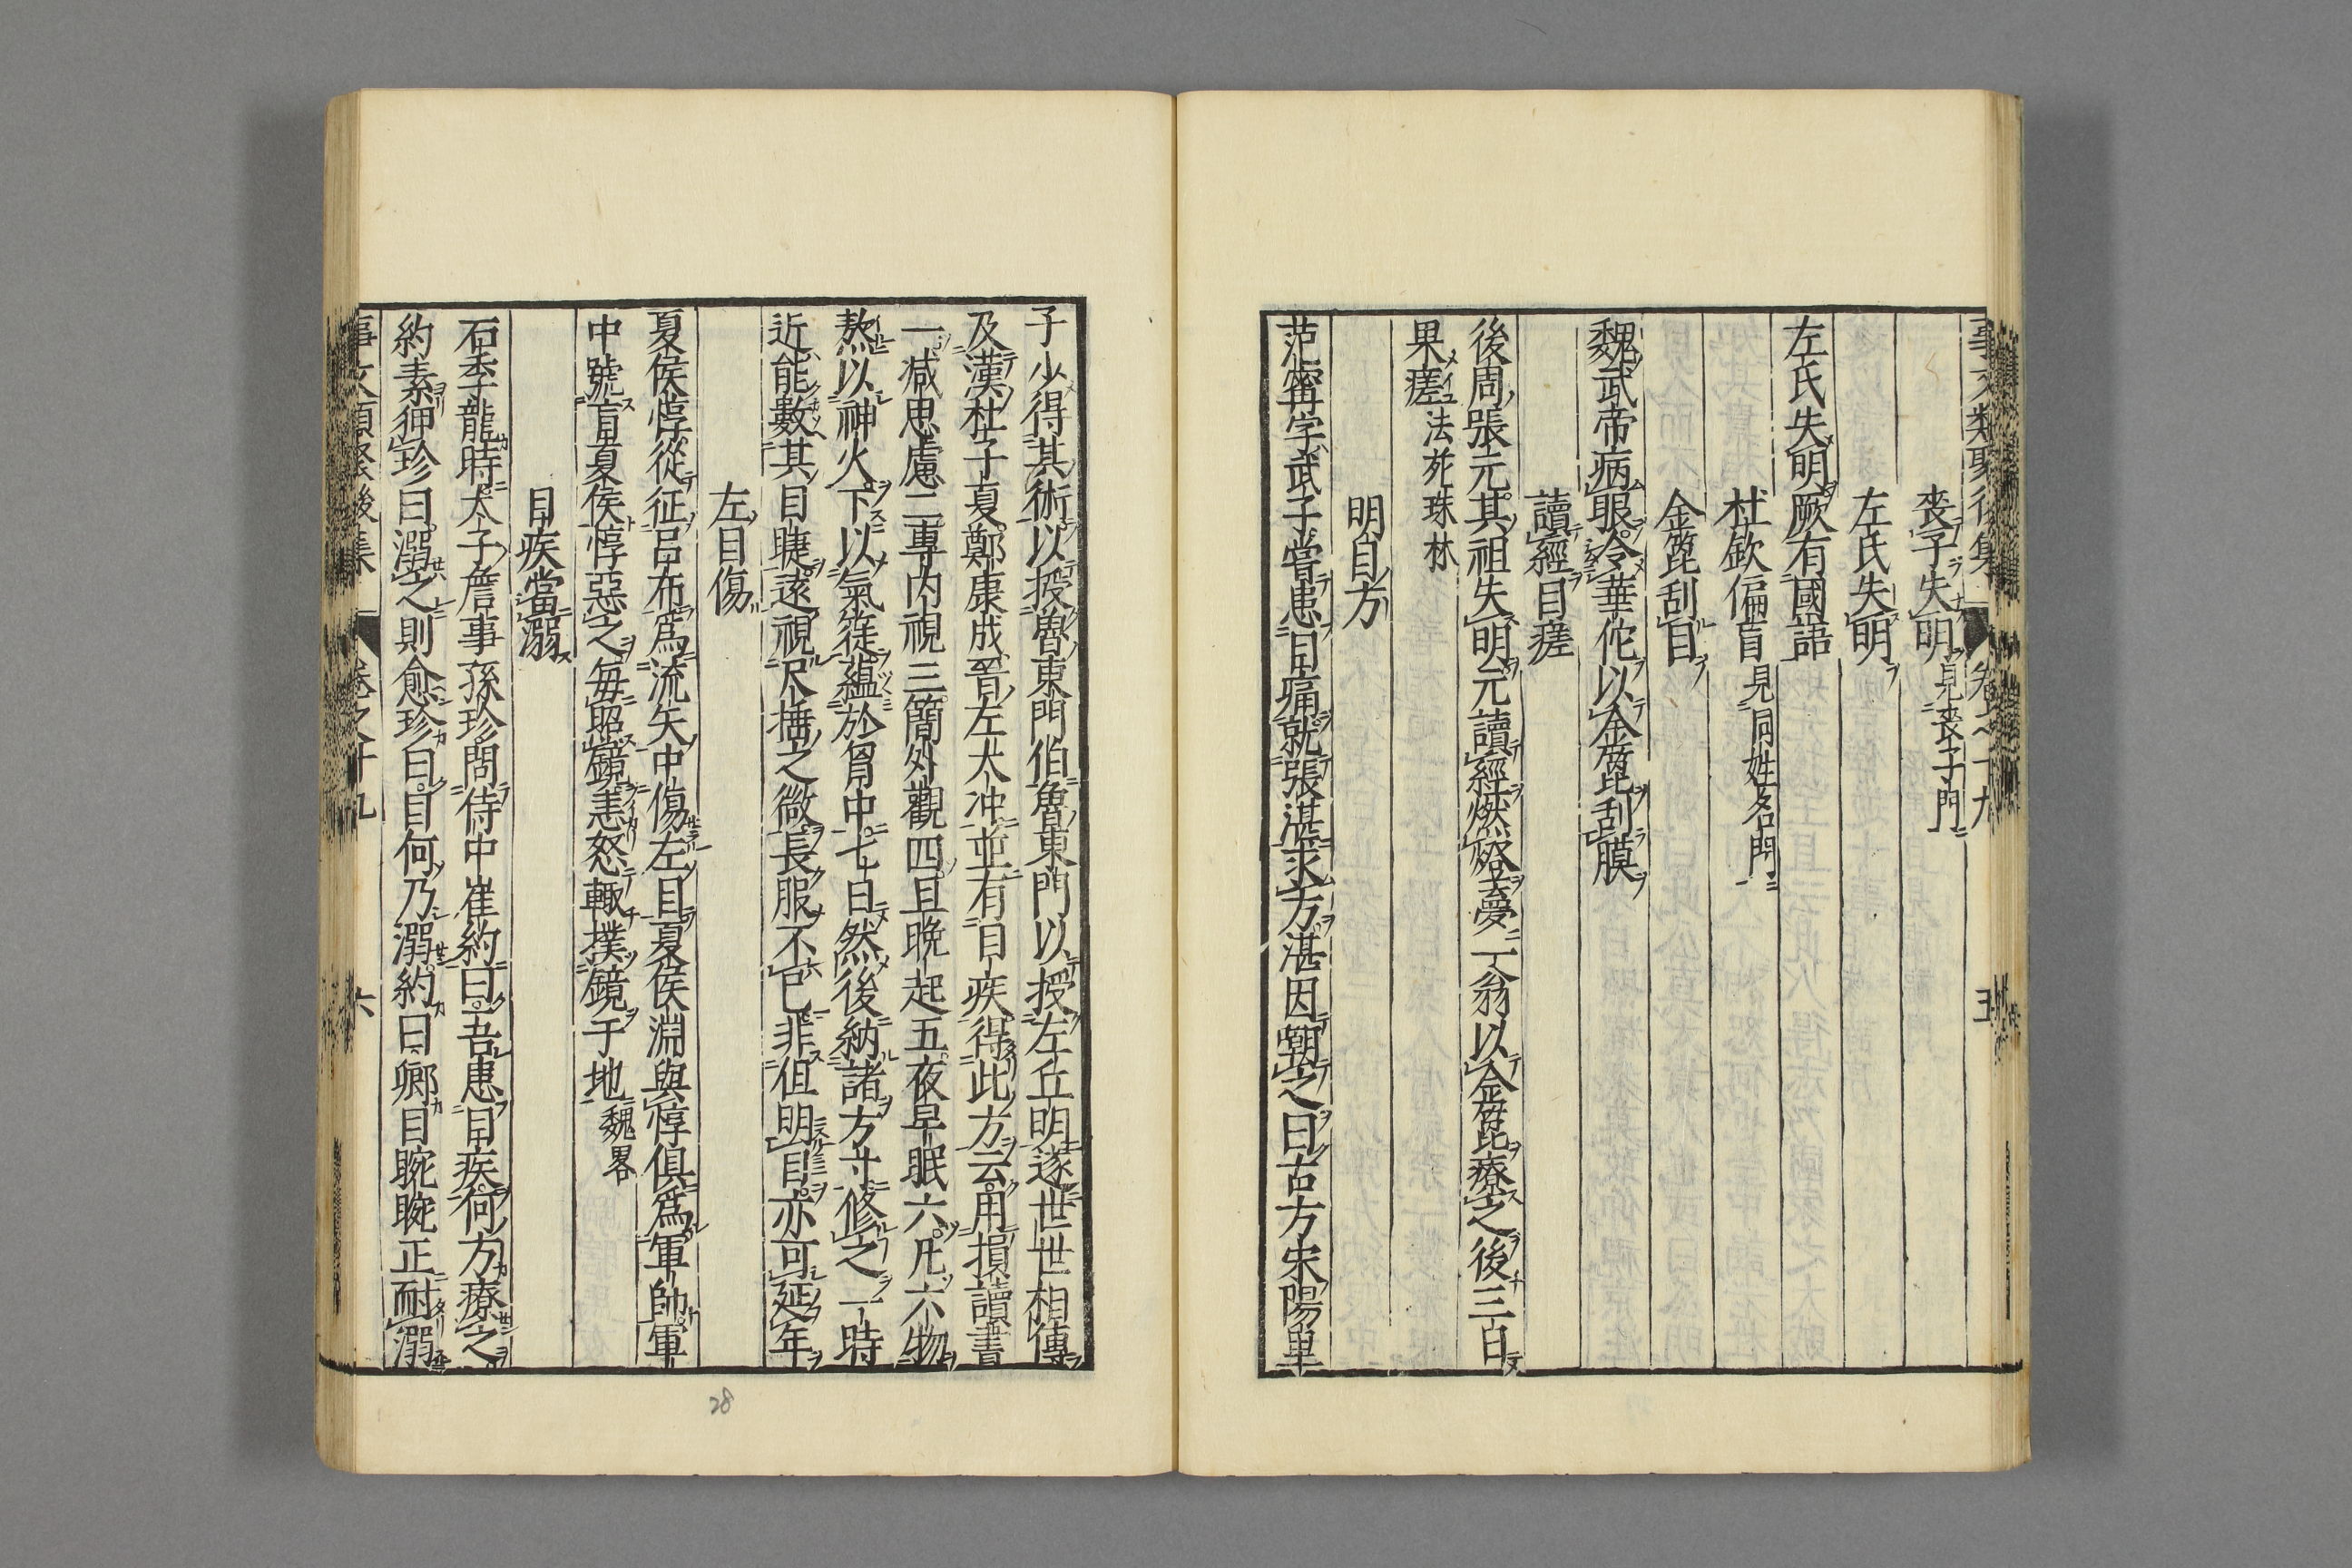 事文類聚後集 卷之十九 五
喪子失明見喪子門
左氏失明
左氏失明厥有國語
杜欽偏盲見同姓名門
金篦刮目
魏武帝病眼令華佗以金篦刮膜
讀經目瘥
後周張元其祖失明元讀經燃燈夢一翁以金篦療之後三日
果瘥法苑珠林
明目方
范甯字武子嘗患目痛就張湛求方湛因嘲之曰古方宋陽里
子少得其術以授魯東門伯魯東門以授左丘明遂世世相傳
及漢杜子夏鄭康成晉左太冲並有目疾得此方云用損讀書
一减思慮二專内視三簡外觀四旦晚起五夜早眠六凡六物
熬以神火下以氣簁蘊於胷中七日然後納諸方寸修之一時
近能數其目睫遠視尺捶之微長服不已非但明目亦可延年
左目傷
夏侯惇從征吕布爲流矢中傷左目夏侯淵與惇俱爲軍帥軍
中號盲夏侯惇惡之毎照鏡恚怒輙撲鏡于地魏畧
目疾當溺
石季龍時太子詹事孫珍問侍中崔約曰吾患目疾何方療之
約素狎珍曰溺之則愈珍曰目何乃溺約曰卿目睕睕正耐溺
事文類聚後集 卷之十九 六
28